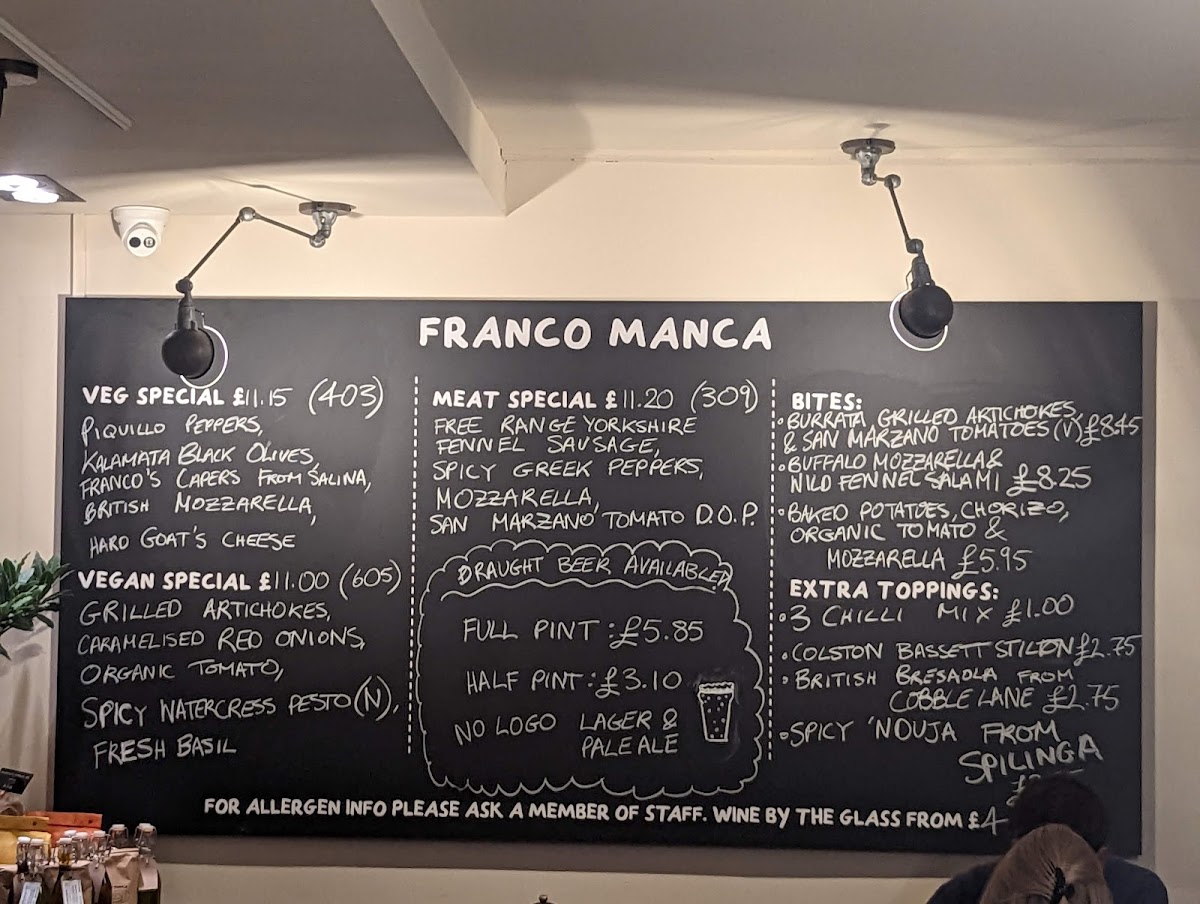 FRANCO MANCA
VEG SPECIAL £11.15 (403)
PIQUILLO PEPPERS,
KALAMATA BLACK OLIVES,
FRANCO'S CAPERS FROM SALINA,
BRITISH MOZZARELLA,
HARD GOAT'S CHEESE
VEGAN SPECIAL £11.00 (605)
GRILLED ARTICHOKES,
CARAMELISED RED ONIONS,
ORGANIC TOMATO,
SPICY WATERCRESS PESTO (N),
FRESH BASIL
MEAT SPECIAL £11.20 (309)
FREE RANGE YORKSHIRE
FENNEL SAUSAGE,
SPICY GREEK PEPPERS,
MOZZARELLA,
SAN MARZANO TOMATO D.O.P.
DRAUGHT BEER AVAILABLE
FULL PINT: £5.85
HALF PINT: £3.10
NO LOGO LAGER &
PALE ALE
BITES:
• BURRATA GRILLED ARTICHOKES,
& SAN MARZANO TOMATOES (V) £8.45
• BUFFALO MOZZARELLA &
WILD FENNEL SALAMI £8.25
• BAKED POTATOES, CHORIZO,
ORGANIC TOMATO &
MOZZARELLA £5.95
EXTRA TOPPINGS:
• 3 CHILLI MIX £1.00
• COLSTON BASSETT STILTON £2.75
• BRITISH BRESAOLA FROM
COBBLE LANE £2.75
• SPICY 'NDUJA FROM
SPILINGA
FOR ALLERGEN INFO PLEASE ASK A MEMBER OF STAFF. WINE BY THE GLASS FROM £4